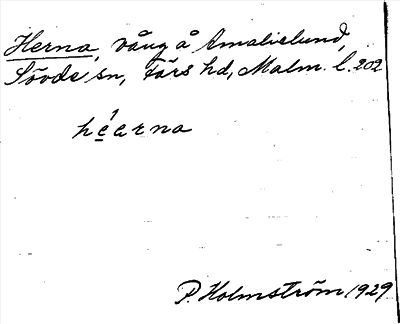 Herna, vång å Amalielund,
Sövde sn, Färs hd, Malm. l. 202
héarna
P. Holmström 1929